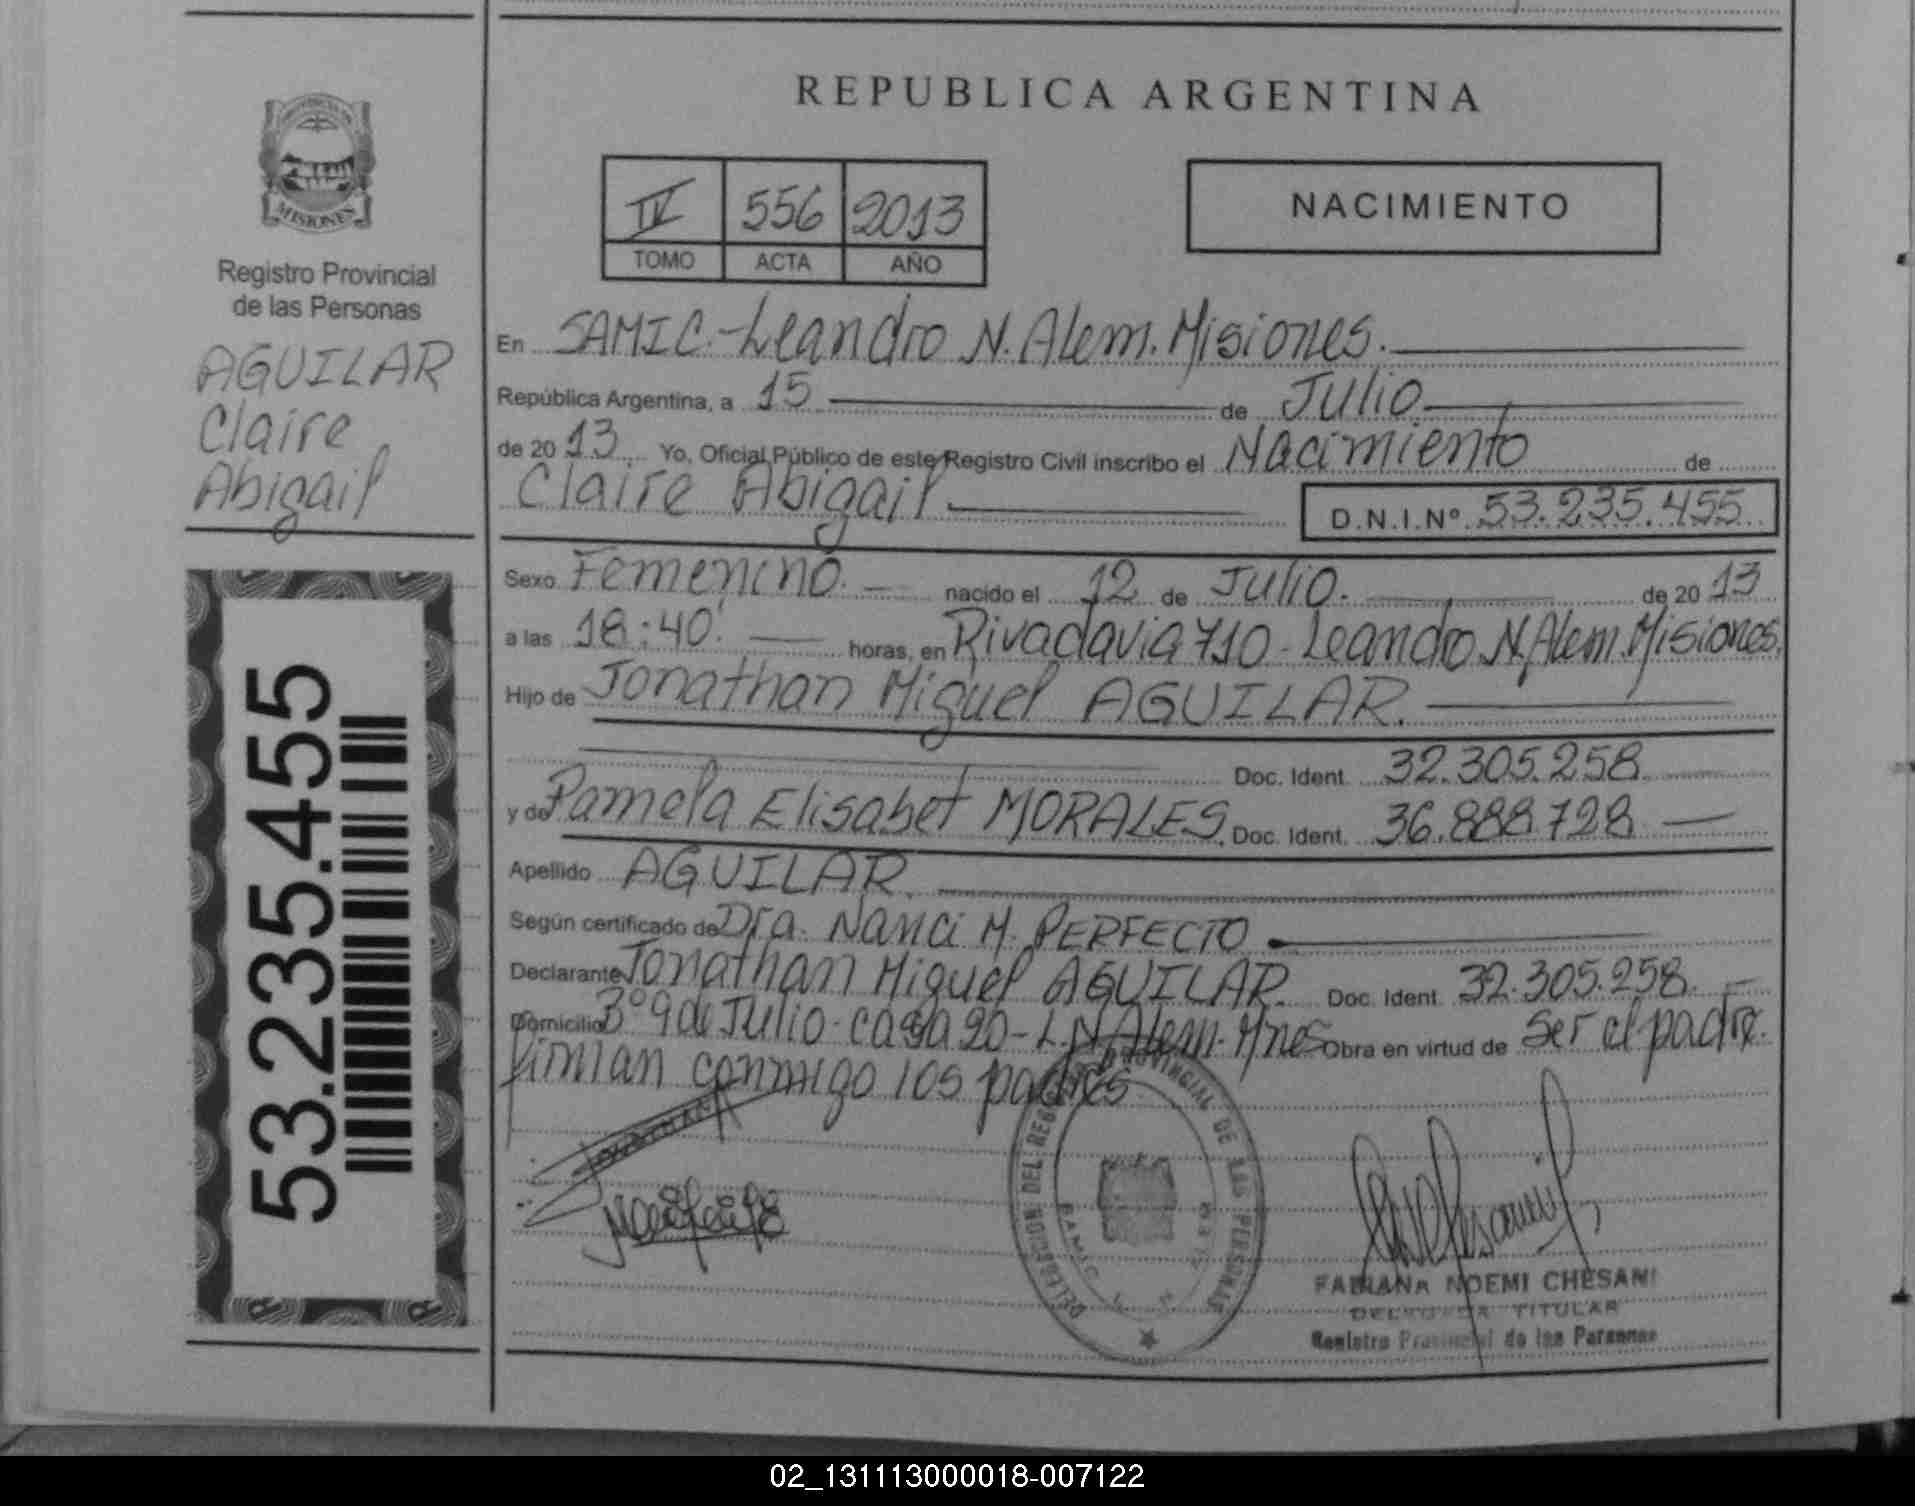 REPUBLICA ARGENTINA
PROVINCIA DE
MISIONES
Registro Provincial
de las Personas
AGUILAR
Claire
Abigail
53.235.455
IV 556 2013
TOMO ACTA AÑO
NACIMIENTO
En SAMIC.-Leandro N. Alem. Misiones.
República Argentina, a 15 de Julio
de 2013 Yo, Oficial Público de este Registro Civil inscribo el Nacimiento de
Claire Abigail D.N.I.Nº 53.235.455
Sexo Femenino. nacido el 12 de Julio. de 2013
a las 18:40' horas, en Rivadavia 710 - Leandro N. Alem. Misiones.
Hijo de Jonathan Miguel AGUILAR.
Doc. Ident. 32.305.258
y de Pamela Elisabet MORALES. Doc. Ident. 36.888.728
Apellido AGUILAR.
Según certificado de Dra. Nanci M. PERFECTO
Declarante Jonathan Miguel AGUILAR. Doc. Ident. 32.305.258.
Domicilio Bº 9 de Julio - casa 20 - L.N. Alem. Mnes Obra en virtud de Ser el padre.
firman conmigo los padres
DELEGACION DEL REGISTRO PROVINCIAL DE LAS PERSONAS
SAMIC
FABIANA NOEMI CHESANI
DELEGADA TITULAR
Registro Provincial de las Personas
02_131113000018-007122